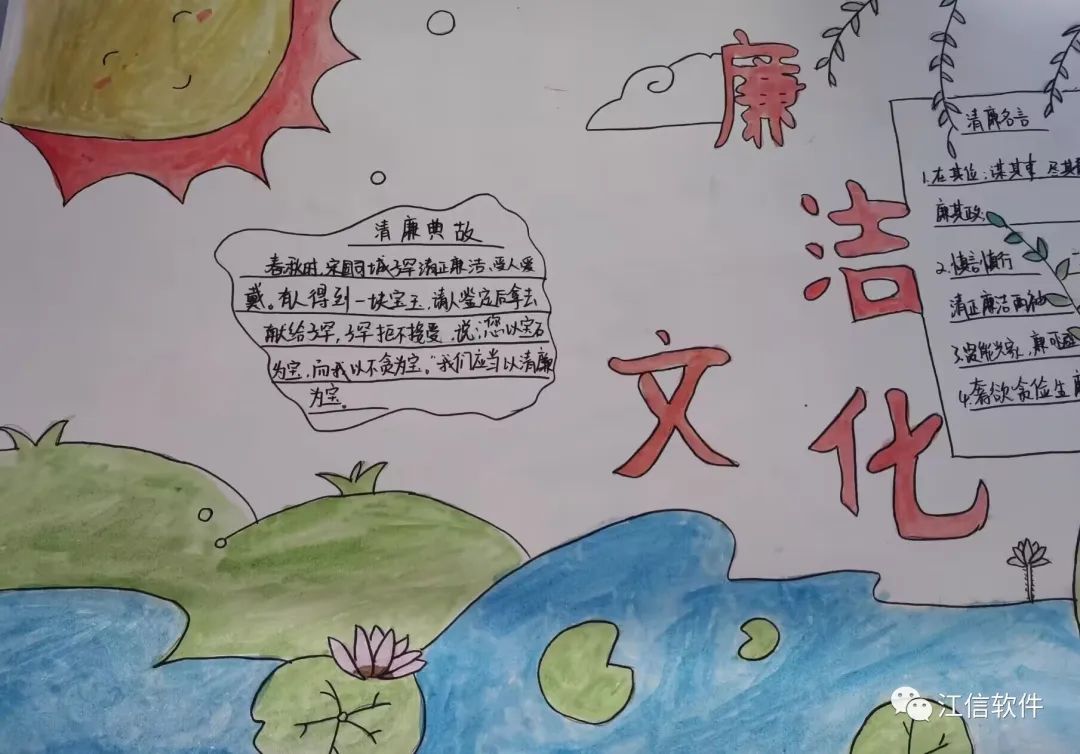 廉
洁
文
化
清廉典故
春秋时,宋国司城子罕清正廉洁、受人爱
戴。有人得到一块宝玉,请人鉴定后拿去
献给子罕,子罕拒不接受,说:"您以宝石
为宝,而我以不贪为宝。"我们应当以清廉
为宝。
清廉名言
1.在其位:谋其事 尽其
廉其政。
2.慎言慎行
清正廉洁两袖
3.贤能兴家,廉
4.奢欲贪俭生
江信软件